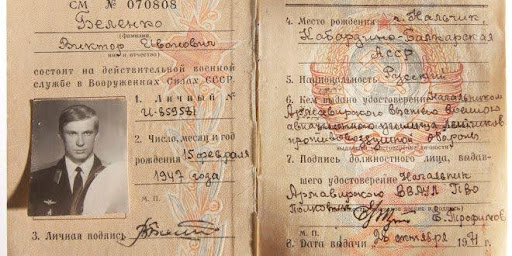 СМ № 070808
Беленко
(фамилия)
Виктор Иванович
(имя и отчество)
состоит на действительной военной
службе в Вооруженных Силах СССР.
1. Личный №
И-659581
2. Число, месяц и год
рождения 15 февраля
1947 года
м. п.
3. Личная подпись
4. Место рождения г. Нальчик
Кабардино-Балкарская
АССР
5. Национальность Русский
6. Кем выдано удостоверение Начальником
Армавирского высшего военного
авиационного училища лётчиков
противовоздушной обороны
7. Подпись должностного лица, выдав-
шего удостоверение Начальник
Армавирского ВВАУЛ ПВО
Полковник Е. Трофимов
(подпись)
М. П.
8. Дата выдачи 26 октября 1971 г.